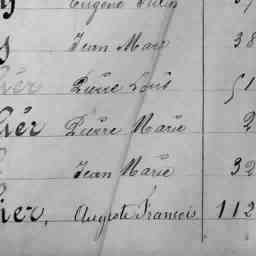 Eugène Julien
Jean Marc 38
ier Pierre Louis 51
lier Pierre Marie 2
Jean Marie 32
lier, Auguste François 112